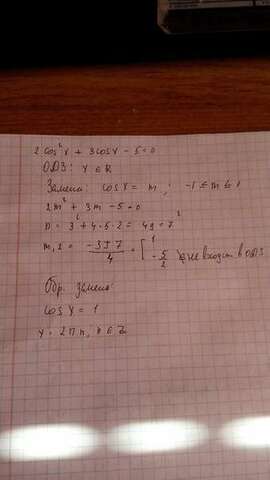 2cos²x + 3cosx - 5 = 0
ОДЗ: x ∈ R
Замена: cosx = m ; -1 ≤ m ≤ 1
2m² + 3m - 5 = 0
D = 3² + 4·5·2 = 49 = 7²
m₁,₂ = (-3±7)/4 = [ 1 ; -5/2 не входит в ОДЗ
Обр. замена:
cosx = 1
x = 2πn, n ∈ Z